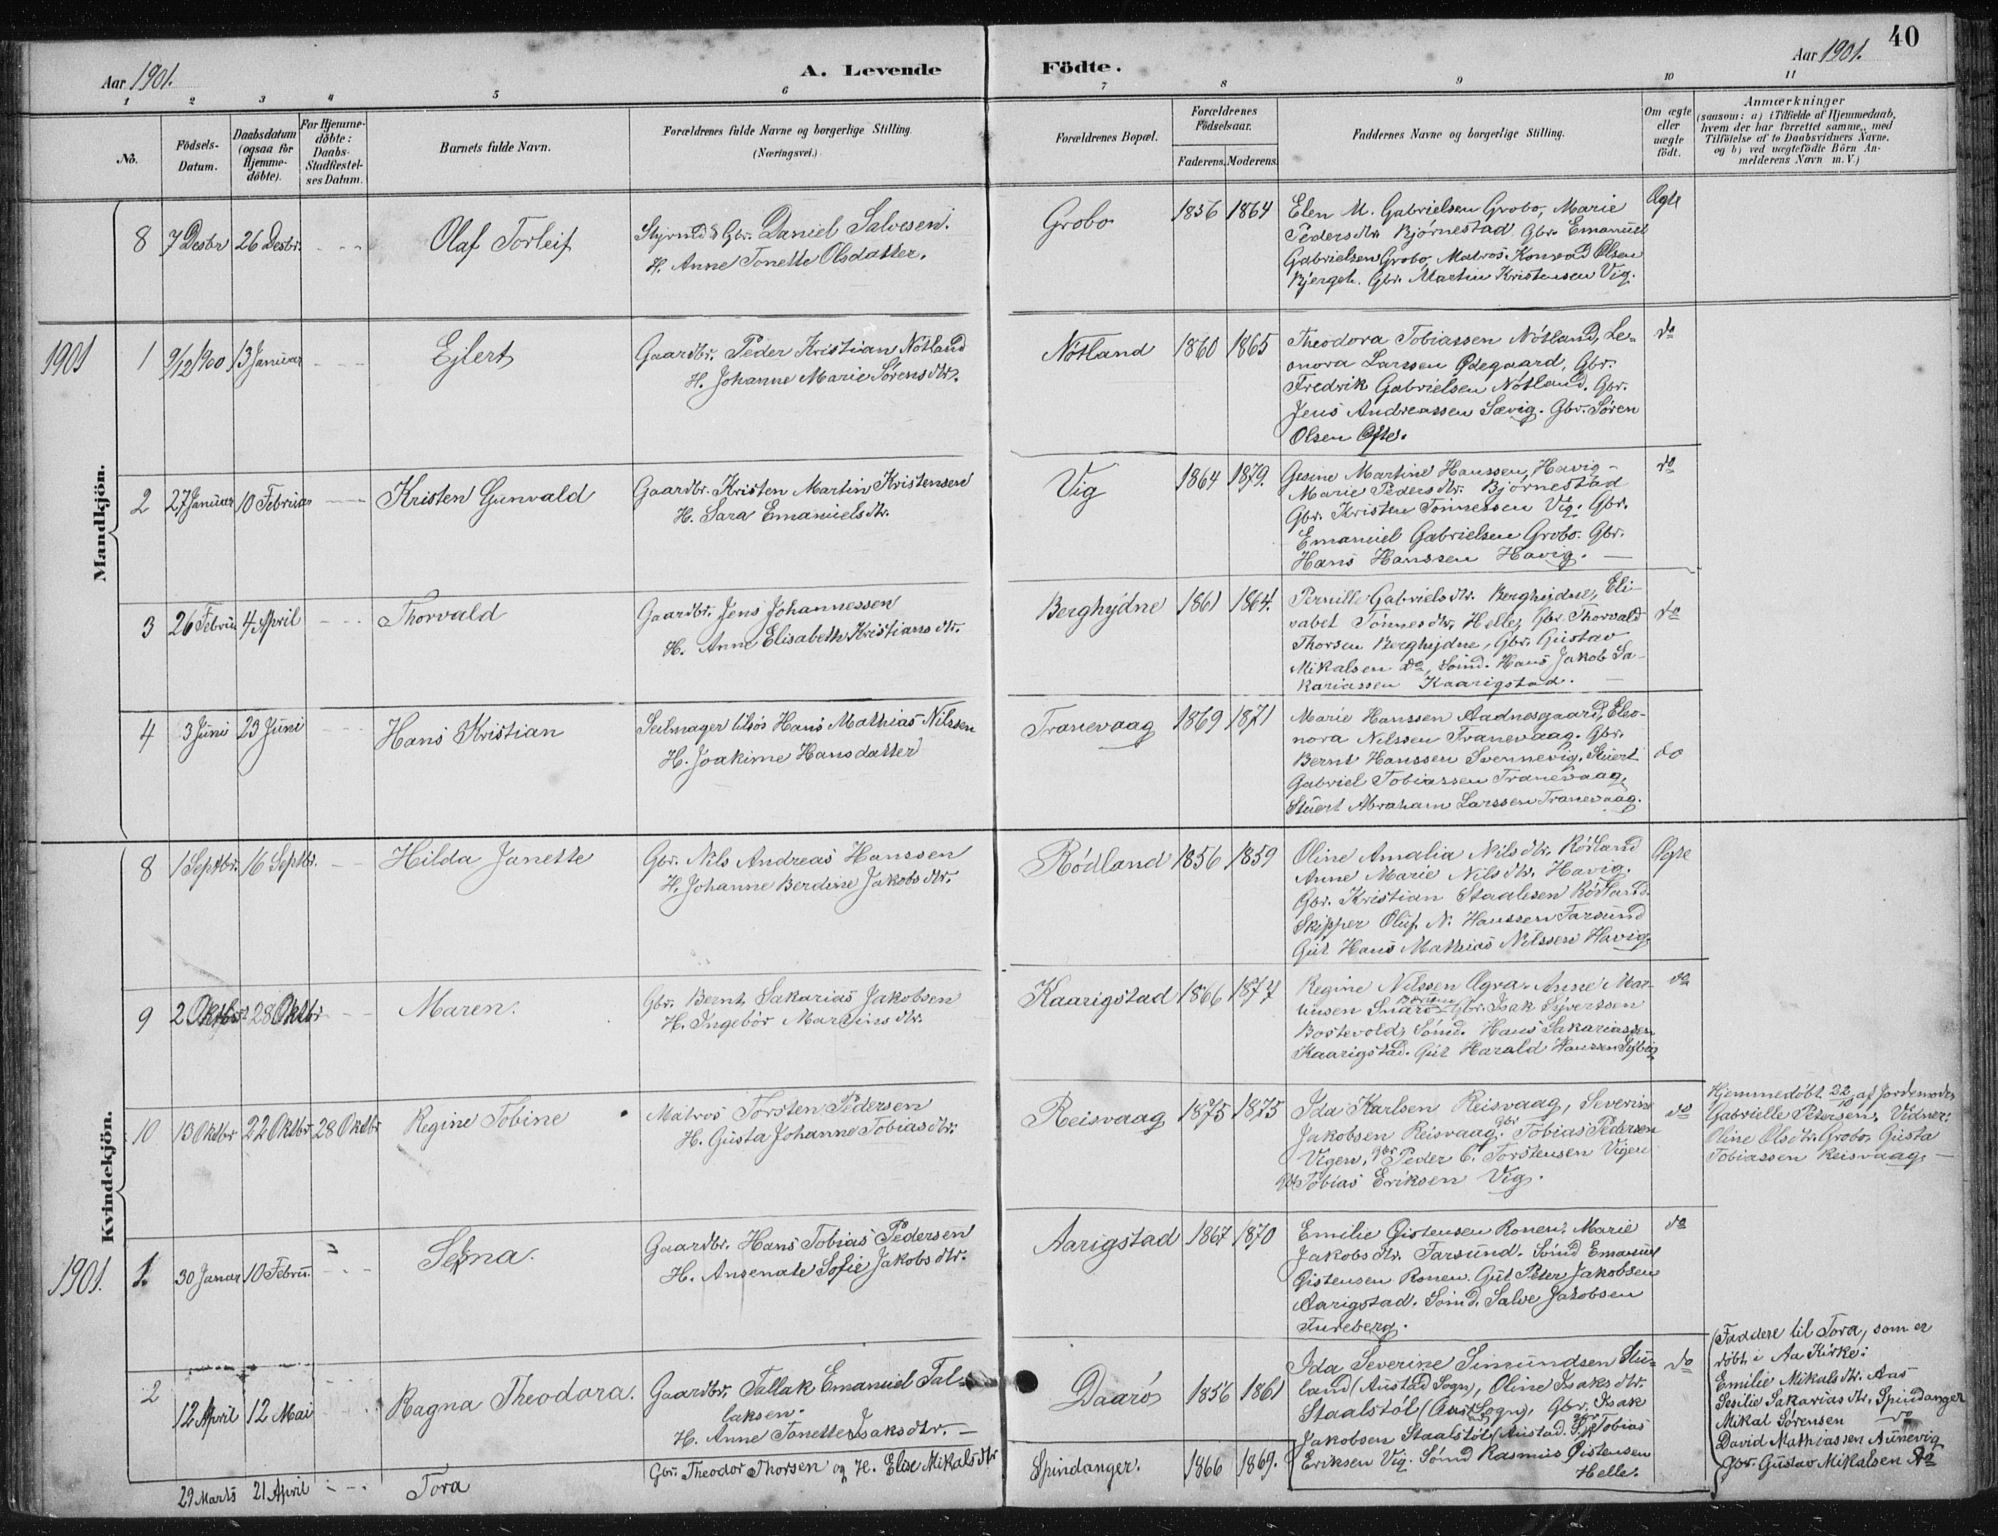 40
Aar 1901.
A. Levende
Födte.
Aar 1901.
1 2 3 4 5 6 7 8 9 10 11
No.
Födsels-
Datum.
Daabsdatum
(ogsaa for
Hjemme-
döbte).
For Hjemme-
döbte:
Daabs-
Stadfæstel-
ses Datum.
Barnets fulde Navn.
Forældrenes fulde Navne og borgerlige Stilling.
(Næringsvei.)
Forældrenes Bopæl.
Forældrenes
Födselsaar.
Faderens. Moderens.
Faddernes Navne og borgerlige Stilling.
Om ægte
eller
uægte
födt.
Anmærkninger
(saasom: a) i Tilfælde af Hjemmedaab,
hvem der har forrettet samme, med
Tilföielse af to Daabsvidners Navne,
og b) ved uægtefödte Börn An-
melderens Navn m. V.)
Mandkjön.
8 7 Desbr 26 Desbr. Olaf Torleif
Styrmd & Gbr. Daniel Salvesen.
H. Anne Tonette Olsdatter.
Grobo 1856 1864
Elen M. Gabrielsen Grobo, Marie
Pedersdtr. Bjørnestad Gbr. Emanuel
Gabrielsen Grobo, Matros Konrad Olsen
Bjergeh. Gbr. Martin Kristensen Vig.
Ægte
1901
1 9/12 1900 13 Januar Ejlert
Gaardbr. Peder Kristian Nøtland
H. Johanne Marie Sørensdtr.
Nøtland 1860 1865
Theodora Tobiassen Nøtland, Le-
onora Larssen Ødegaard, Gbr.
Fredrik Gabrielsen Nøtland. Gbr.
Jens Andreassen Sævig. Gbr. Søren
Olsen Ofte.
do
2 27 Januar 10 Februar Kristen Gunvald
Gaardbr. Kristen Martin Kristensen
H. Sara Emanuelsdtr.
Vig 1864 1879.
Gesine Martine Hanssen, Havig -
Marie Pedersdtr. Bjørnestad
Gbr. Kristen Tønnessen Vig. Gbr.
Emanuel Gabrielsen Grobo. Gbr.
Hans Hanssen Havig. —
do
3 26 Febru 4 April Thorvald
Gaardbr. Jens Johannessen
H. Anne Elisabeth Kristiansdtr.
Berghydne 1861 1864.
Pernille Gabrielsdtr. Berghydne, Eli-
sabet Tønnesdtr. Helle, Gbr. Thorvald
Thorsen Berghydne, Gbr. Gustav
Mikalsen do, Sømd. Hans Jakob Sa-
kariassen Kaarigstad. —
do
4 3 Juni 23 Juni Hans Kristian
Seilmager tilsøs Hans Mathias Nilssen
H. Joakime Hansdatter
Tranevaag 1869 1871
Marie Hanssen Aadnesgaard, Eleo-
nora Nilssen Tranevaag. Gbr.
Bernt Hanssen Svennevig, Stuert
Gabriel Tobiassen Tranevaag,
Stuert Abraham Larssen Tranevaag.
do
Kvindekjön.
8 1 Septbr. 16 Septbr. Hilda Janette
Gbr. Nils Andreas Hanssen
H. Johanne Berdine Jakobsdtr.
Rødland 1856 1859
Oline Amalia Nilsdtr. Rødland
Anne Marie Nilsdtr. Havig.
Gbr. Kristian Staalesen Rødland.
Skipper Oluf N. Hanssen Farsund
Gut Hans Mathias Nilssen Havig.
Ægte
9 2 Oktbr 28 Oktbr Maren.
Gbr. Bernt Sakarias Jakobsen
H. Ingebør Martinsdtr.
Kaarigstad 1866 1877
Regine Nilssen Ogra. Anne Mar-
Gbr. Isak Syverssen
Bostevold, Sømd. Hans Sakariassen
Kaarigstad. Gut Harald Hanssen
do
10 13 Oktbr 22 Oktbr 28 Oktbr Regine Tobine
Matros Torsten Pedersen
H. Gusta Johanne Tobiasdtr.
Reisvaag 1875 1875
Ida Karlsen Reisvaag, Severin
Jakobsen Reisvaag. Gbr Tobias Pedersen
Vigen, Gbr Peder C. Torstensen Vigen
Gbr Tobias Eriksen Vig.
do
Hjemmedøbt 22/10 af Jordemoder
Gabrielle Petersen, Vidner:
Oline Olsdtr. Grobo, Gusta
Tobiassen Reisvaag. —
1901.
1. 30 Januar 10 Febru.
Gaardbr. Hans Tobias Pedersen
H. Ansenate Sofie Jakobsdtr.
Aarigstad 1867 1870
Emilie Gistensen Ronen. Marie
Jakobsdtr. Farsund. Sømd Emanuel
Gistensen Ronen. Gut Peter Jakobsen
Aarigstad. Sømd. Salve Jakobsen
Fureberg.
do
2 12 April 12 Mai Ragna Theodora.
Gaardbr. Tallak Emanuel Tal-
laksen.
H. Anne Tonette Isaksdtr. —
Daarø 1856 1861
Ida Severine Simundsen Stu-
land (Austad Sogn), Oline Isaksdtr.
Staalstøl (Aust. Sogn), Gbr. Isak
Jakobsen Staalstøl (Austad Sgn) Gbr Tobias
Eriksen Vig. Sømd Rasmus Gistensen
Helle.
do
29 Marts 21 April Tora
Gbr. Theodor Thorsen og H. Elise Mikalsdtr
Spindanger. 1866 1869.
Faddere til Tora, som er
døbt i Aa Kirke:
Emilie Mikalsdtr. Aas
Sesilie Sakariasdtr. Spindanger
Mikal Sørensen do
David Mathiassen Aunevig
Gbr. Gustav Mikalsen do